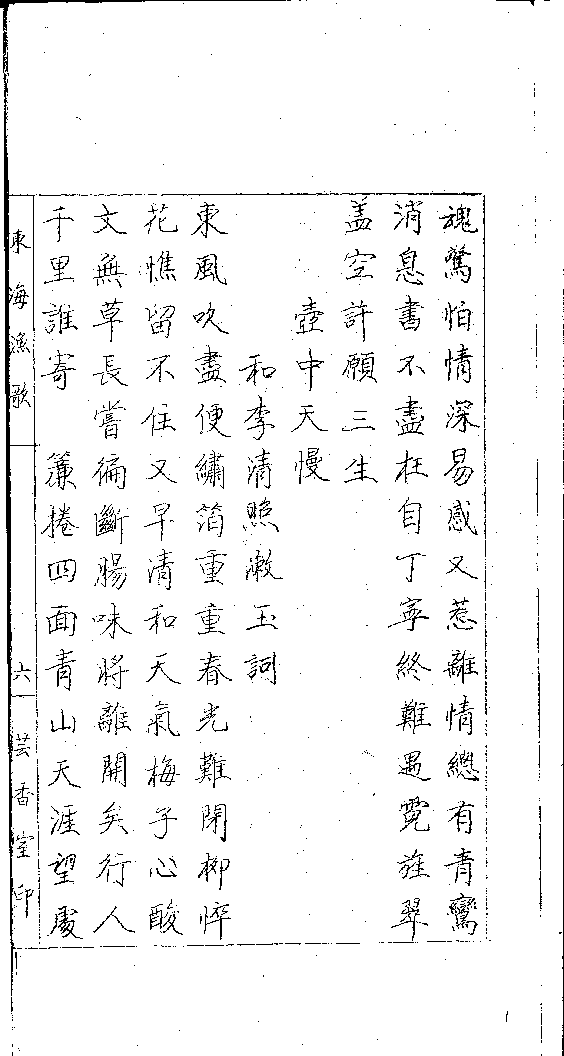 魂驚怕情深易感又惹離情總有青鸞
消息書不盡枉自丁寧終難遇霓旌翠
蓋空許願三生
壺中天慢
和李清照漱玉詞
東風吹盡便繡箔重重春光難閉柳悴
花憔留不住又早清和天氣梅子心酸
文無草長嘗徧斷腸味將離開矣行人
千里誰寄　簾捲四面青山天涯望處
東海漁歌
六
芸香室印